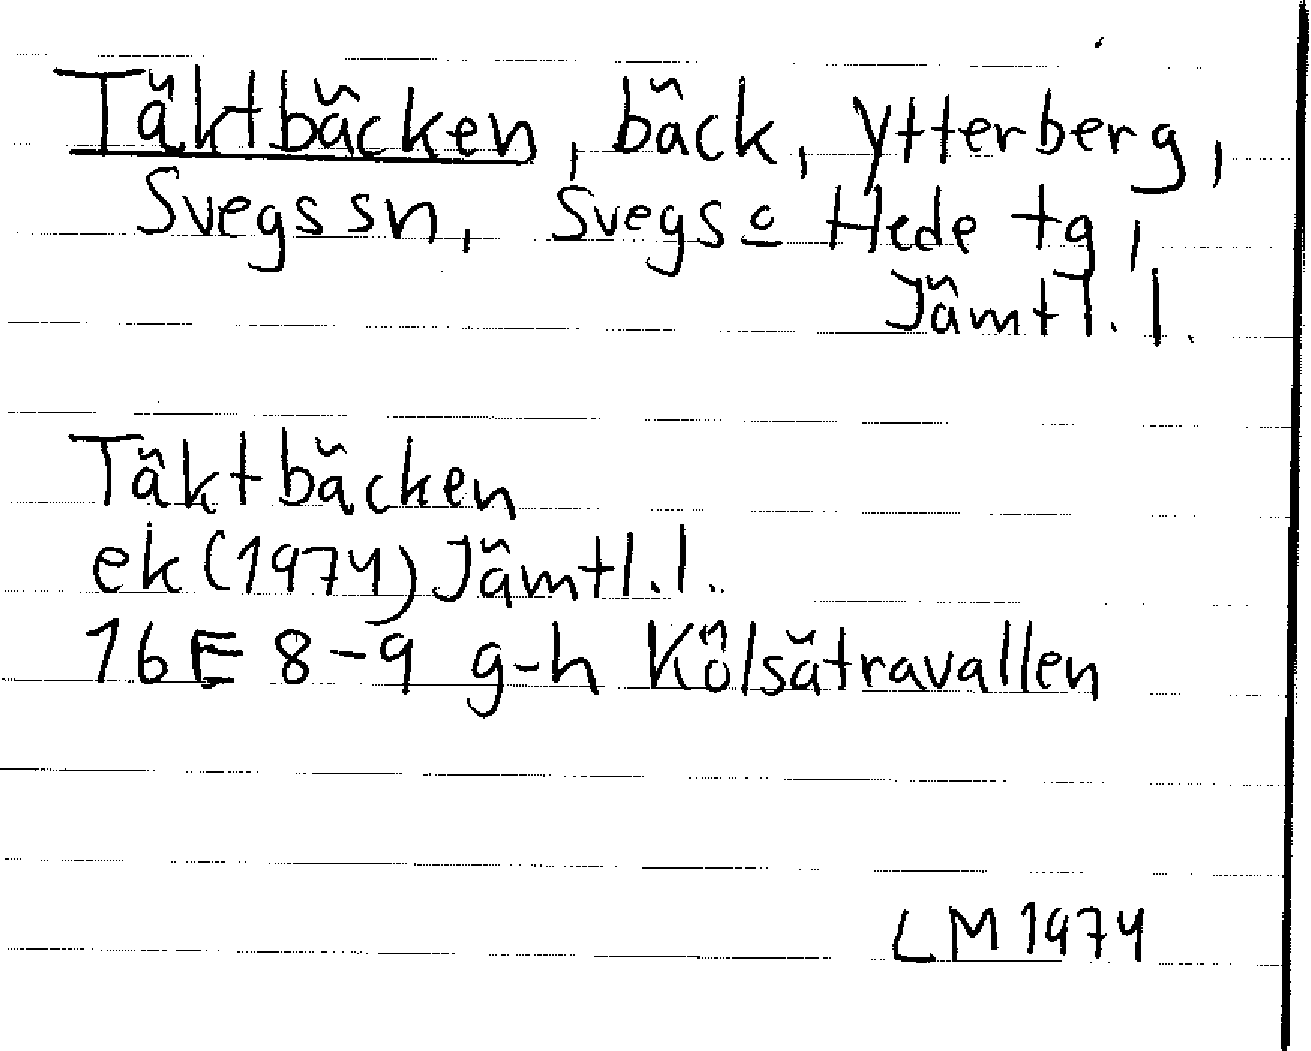 Täktbäcken, bäck, Ytterberg,
Svegs sn, Svegs o Hede tg,
Jämtl. l.
Täktbäcken
ek (1974) Jämtl. l.
16E 8-9 g-h Kölsätravallen
LM 1974